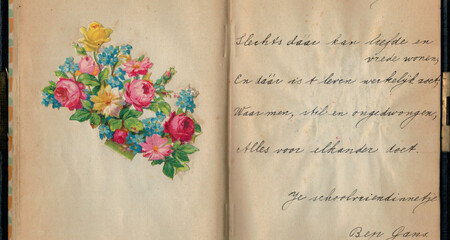 Slechts daar kan liefde en
vrede wonen,
En dáár is 't leven werkelijk zoet,
Waar men, stil en ongedwongen,
Alles voor elkander doet
Je schoolvriendinnetje
Ben Gans